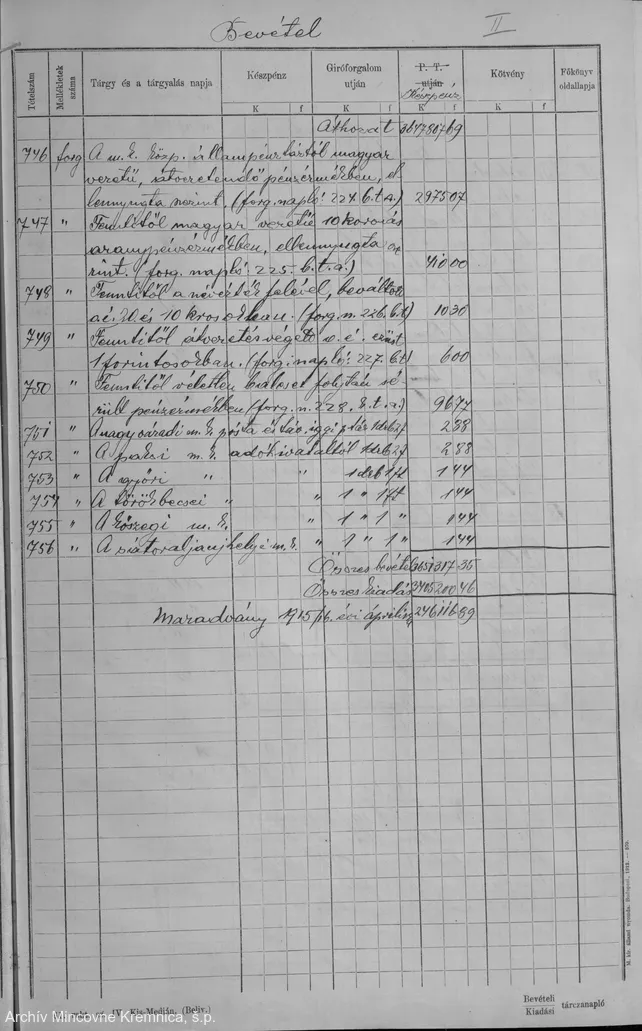 Bevétel
II
Tételszám
Mellékletek száma
Tárgy és a tárgyalás napja
Készpénz
Giróforgalom utján
P. T. utján
Készpénz
Kötvény
Főkönyv oldallapja
K f K f K f K f
Áthozat 3647807 69
746 forg A m. k. közp. állampénztártól magyar
veretű, átveretendő pénzérmékben, el-
lennyugta szerint (forg. napló: 224. b. t. a.) 2975 07
747 " Fenntitől magyar veretű 10 koronás
aranypénzérmékben, ellennyugta sze-
rint. (forg. napló: 225. b. t. a.) 40 00
748 " Fenntitől a névérték felével, beváltott
ac. 20. és 10 krosokban. (forg. n. 226. b. t.) 10 30
749 " Fenntitől átvezetés végett o. é. ezüst
1 forintosokban. (forg. napló: 227. b. t.) 6 00
750 " Fenntitől véletlen baleset folytán sé-
rült pénzérmékben (forg. n. 228. b. t. a.) 96 77
751 " A nagyváradi m. k. posta és táv. igg. p. tár 2 88
752 " A paksi m. k. adóhivataltól 2 88
753 " A győri " " 1 drb 1 ft 1 44
754 " A törökbecsei " " 1 " 1 ft 1 44
755 " A kőszegi m. k. " 1 " 1 " 1 44
756 " A sátoraljaujhelyi m. k. " 1 " 1 " 1 44
Összes bevétel 3651317 35
Összes kiadás 3405200 46
Maradvány 1915/16. évi április 246116 89
M. kir. állami nyomda. Budapest, 1912. —
IV. Kis-Medján. (Beliv.)
Bevételi
Kiadási
tárczanapló
Archív Mincovne Kremnica, š.p.